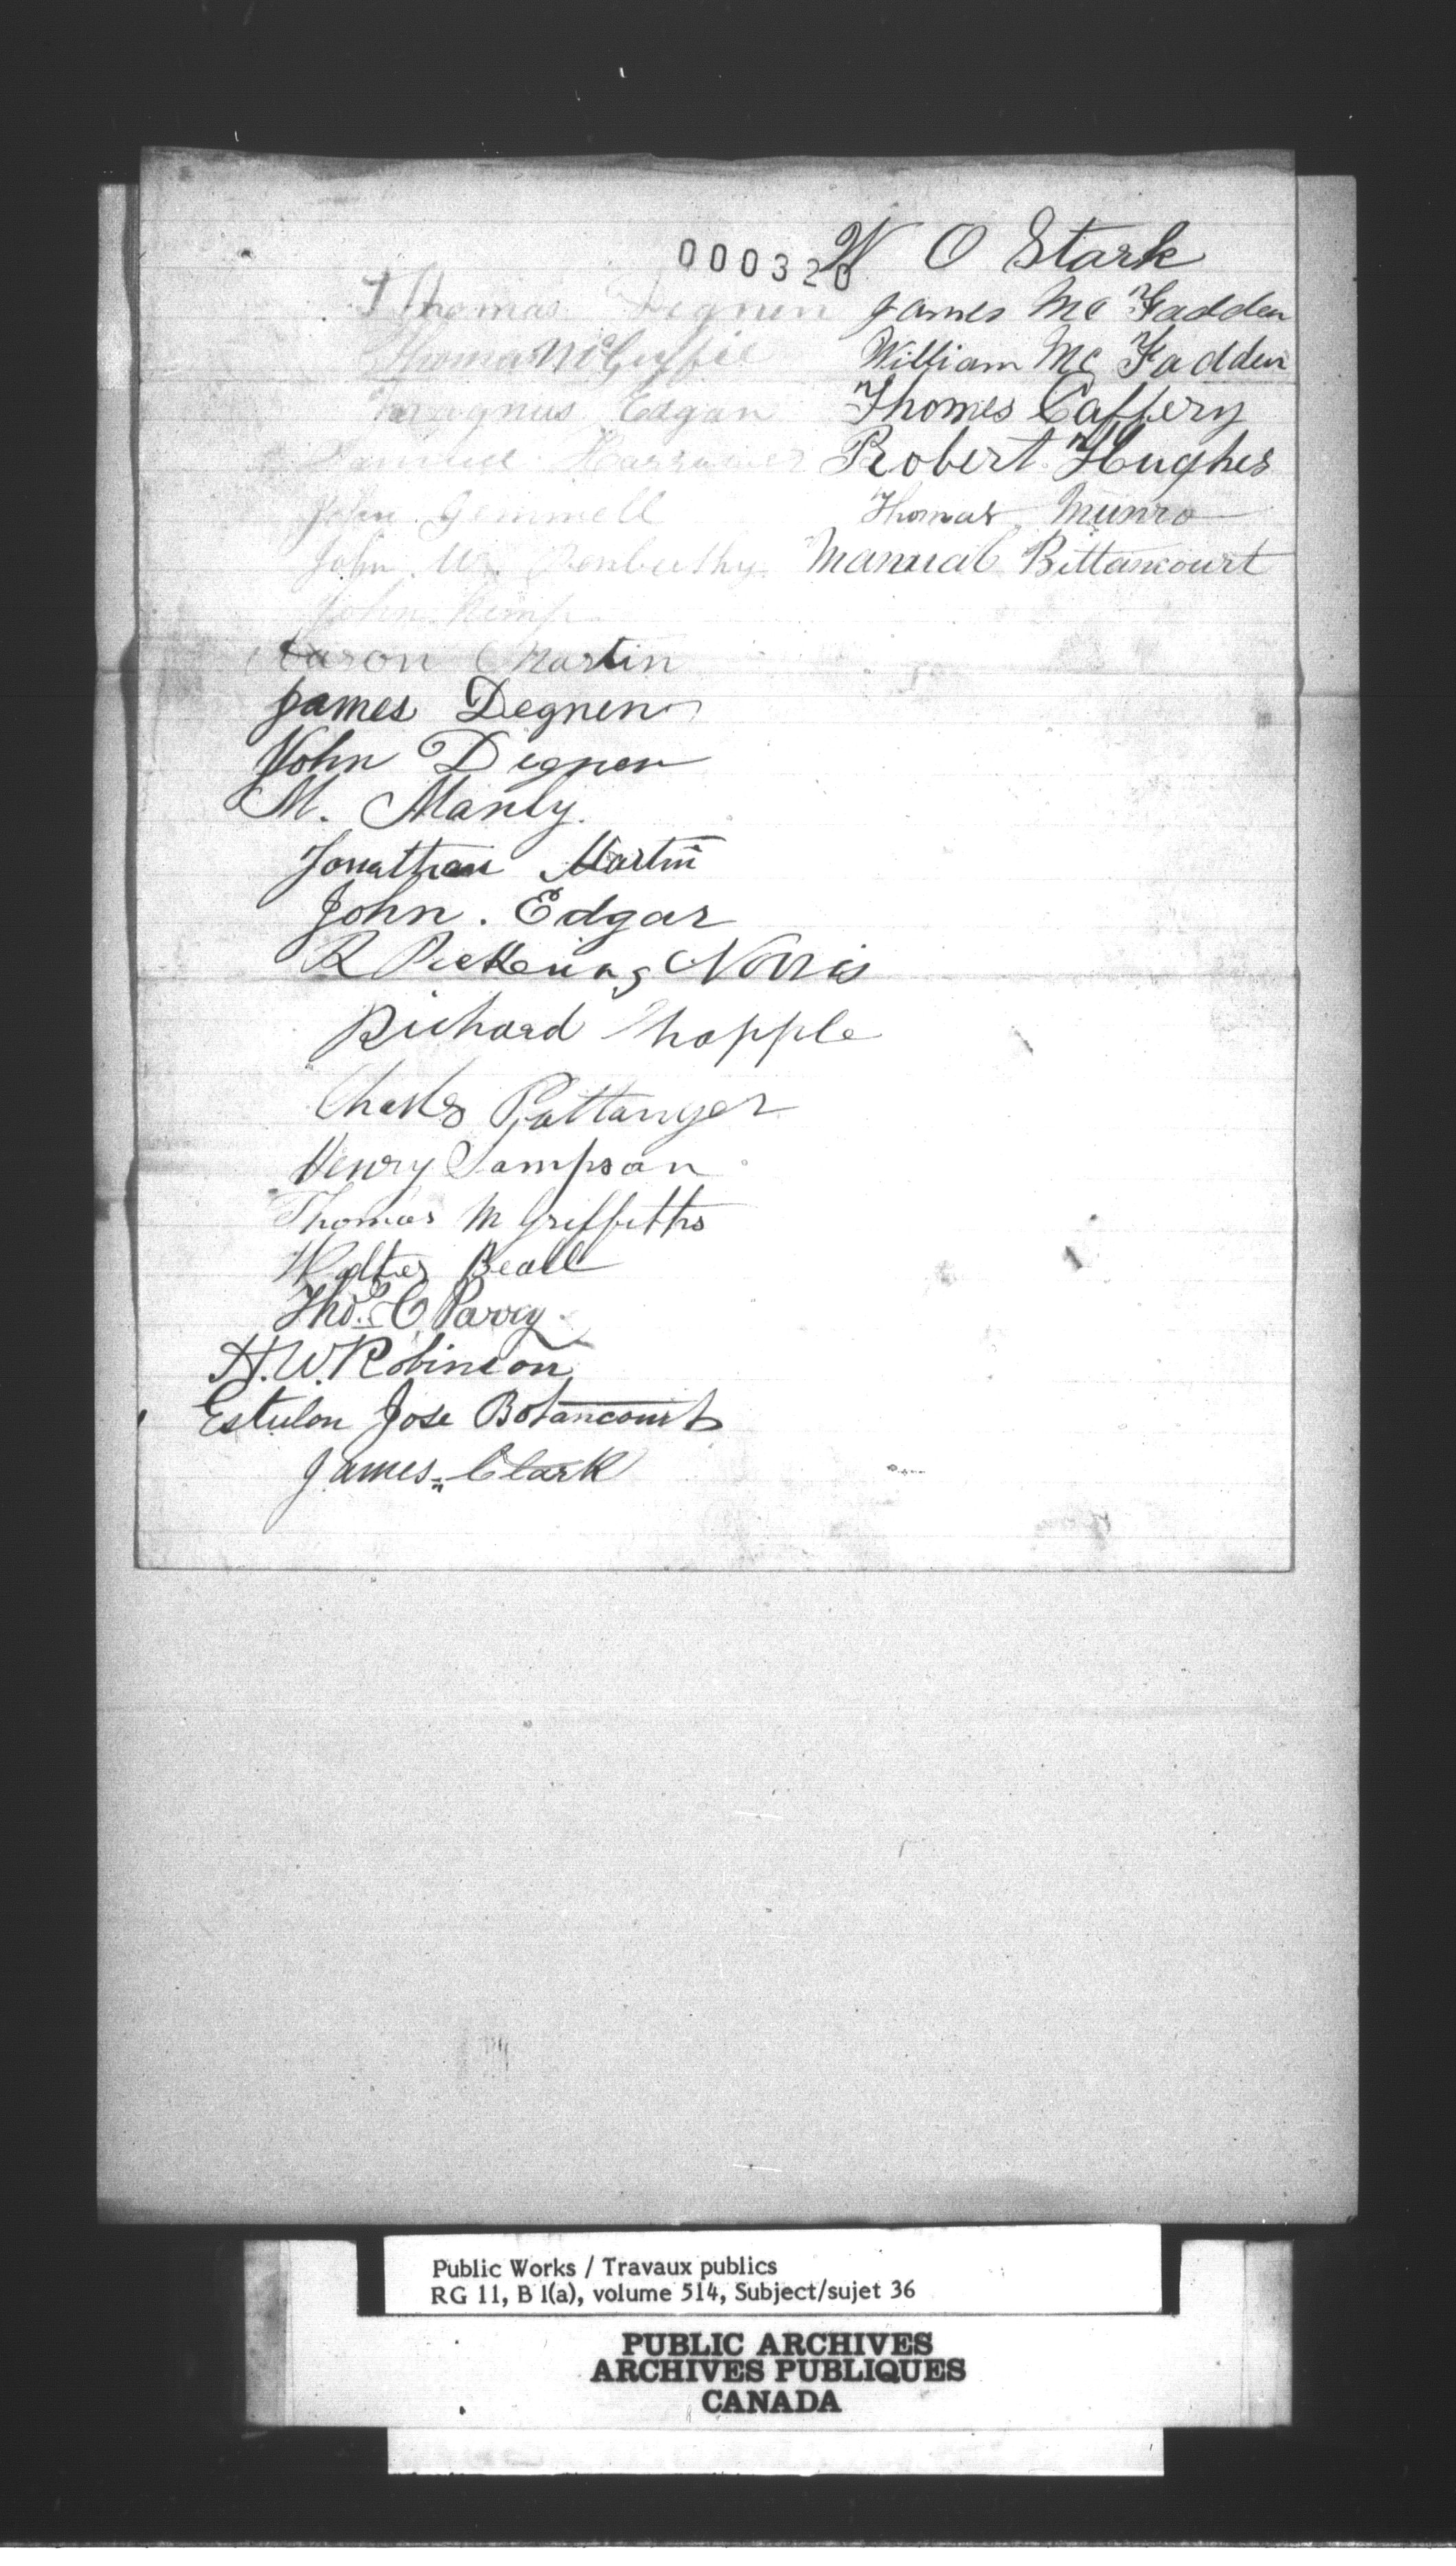 000320
W O Stark
Thomas Degnen
James Mc Fadden
Thomas McGuffie
William Mc Fadden
Magnus Edgar
Thomes Caffery
Samuel
Robert Hughes
John Gemmell
Thomas Munro
John Wm.
Manual Bittancourt
John Kemp
Aaron Martin
James Degnen
John Degnen
M. Manly.
Jonathan Martin
John. Edgar
R Pickering Norris
Richard Chapple
Charles Pattanger
Henry Sampson
Thomas M Griffiths
Walter Beall
Thos. C Parry
H. W. Robinson
Estulon Jose Botancourt
James Clark
Public Works / Travaux publics
RG 11, B 1(a), volume 514, Subject/sujet 36
PUBLIC ARCHIVES
ARCHIVES PUBLIQUES
CANADA